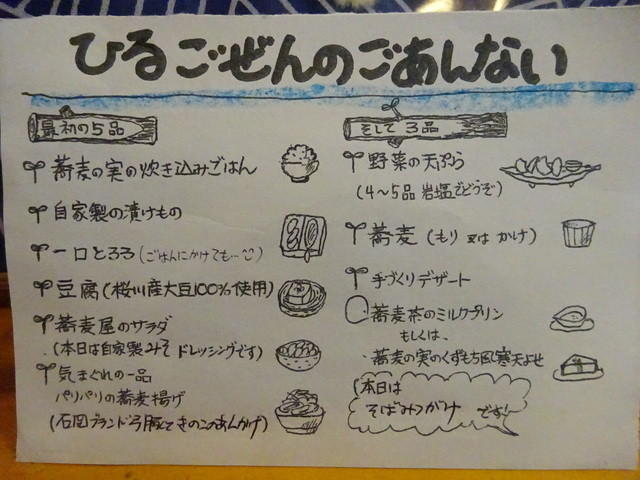 ひるごぜんのごあんない
最初の5品
蕎麦の実の炊き込みごはん
自家製の漬けもの
一口とろろ(ごはんにかけても…)
豆腐(桜川産大豆100%使用)
蕎麦屋のサラダ
(本日は自家製みそドレッシングです)
気まぐれの一品
パリパリの蕎麦揚げ
(石岡ブランド弓豚ときのこのあんかけ)
そして3品
野菜の天ぷら
(4〜5品 岩塩でどうぞ)
蕎麦(もり 又は かけ)
手づくりデザート
・蕎麦茶のミルクプリン
もしくは、
・蕎麦の実のくずもち風寒天よせ
本日は
そばみつがけ です!